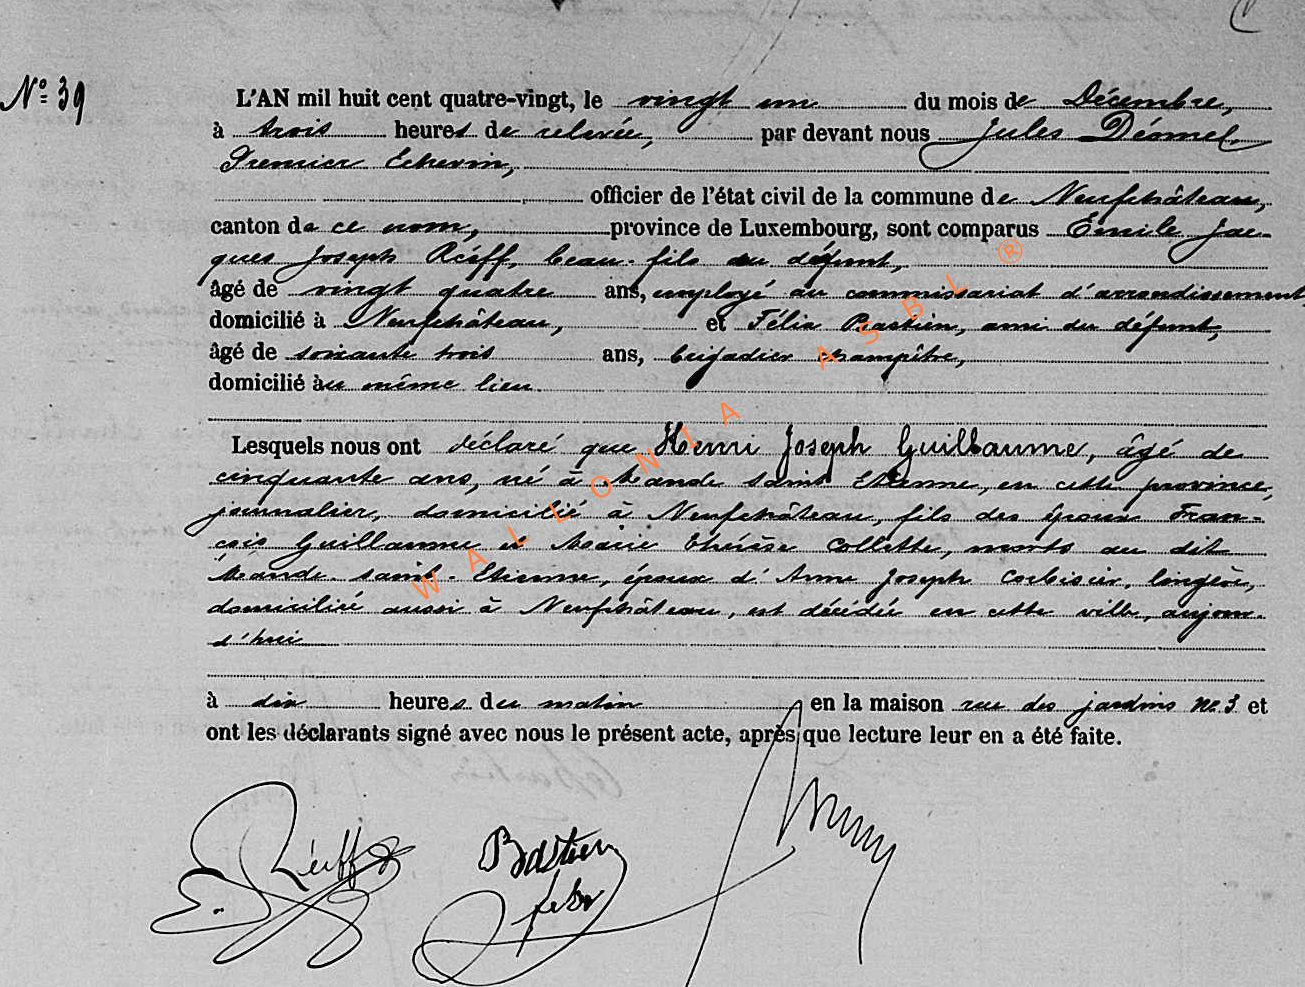 N° 39
L'AN mil huit cent quatre-vingt, le vingt un du mois de Décembre,
à trois heures de relevée, par devant nous Jules
Premier Echevin,
officier de l'état civil de la commune de Neufchâteau,
canton de ce nom, province de Luxembourg, sont comparus Emile Jac-
ques Joseph Réiff, beau-fils du défunt,
âgé de vingt quatre ans, employé au commissariat d'arrondissement
domicilié à Neufchâteau, et Félix Bastien, ami du défunt,
âgé de soixante trois ans, brigadier champêtre,
domicilié au même lieu.
Lesquels nous ont déclaré que Henri Joseph Guillaume, âgé de
cinquante ans, né à Mande saint Etienne, en cette province,
journalier, domicilié à Neufchâteau, fils des époux Fran-
cois Guillaume et Marie Thérèse Collette, morts au dit
Mande-saint-Etienne, époux d'Anne Joseph Corbisier, lingère,
domiciliée aussi à Neufchâteau, est décédé en cette ville, aujour-
d'hui
à dix heures du matin en la maison rue des jardins n° 3 et
ont les déclarants signé avec nous le présent acte, après que lecture leur en a été faite.
E. Réiff
Bastien
felix
WALLONIA ASBL ®